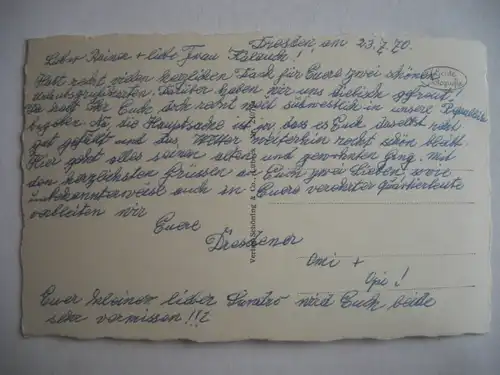 Dresden, am 23.7.70.
Lieber Rainer + liebe Frau Kalauch!
Habt recht vielen herzlichen Dank für Euere zwei schönen
Urlaubsgrüsskarten. Darüber haben wir uns diebisch gefreut.
Da habt Ihr Euch doch recht weit südwestlich in unsere Republik
begeben. Na, die Hauptsache ist ja, dass es Euch daselbst recht
gut gefällt und das Wetter weiterhin recht schön bleibt.
Hier geht alles seinen alten und gewohnten Gang. Mit
den herzlichsten Grüssen an Euch zwei Lieben, sowie
unbekannterweise auch an Euere verehrten Quartiersleute
verbleiben wir
Euere
Dresdener
Omi +
Opi!
Euer kleiner lieber Sandro wird Euch beide
sehr vermissen!!!
Verlag Schöning &